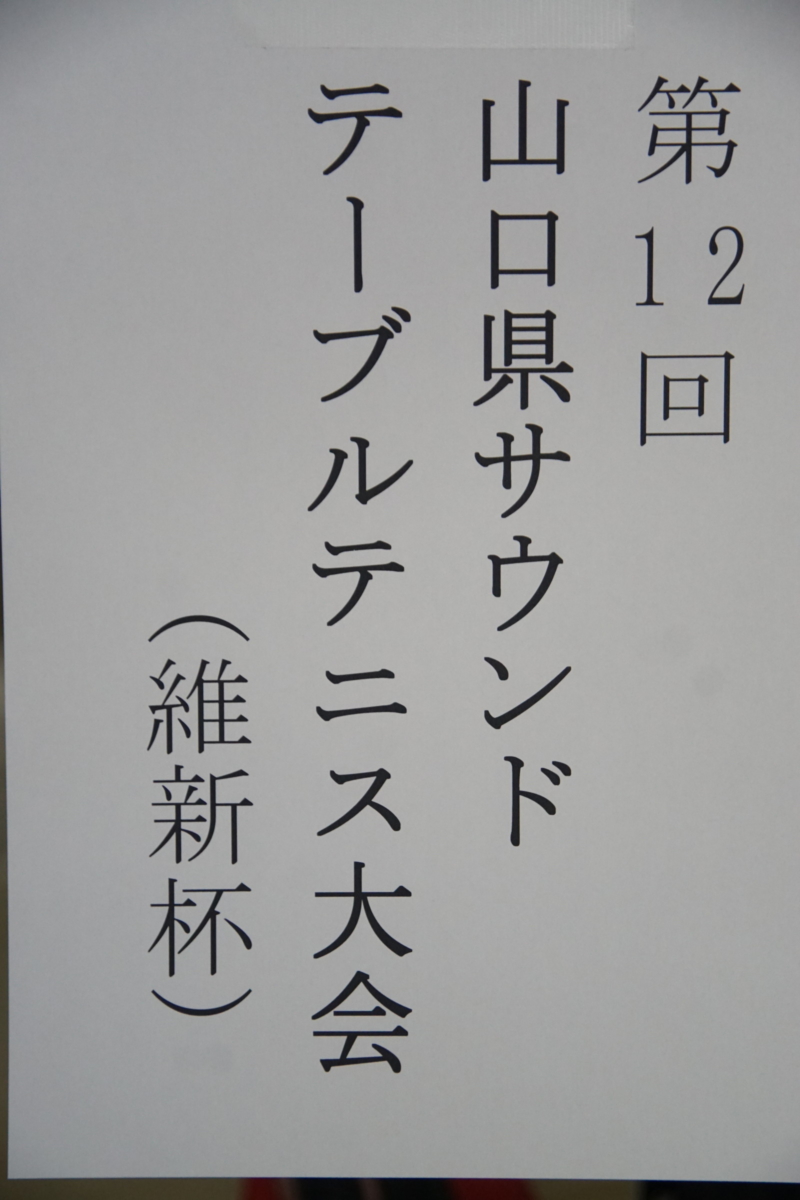 第12回
山口県サウンド
テーブルテニス大会
（維新杯）